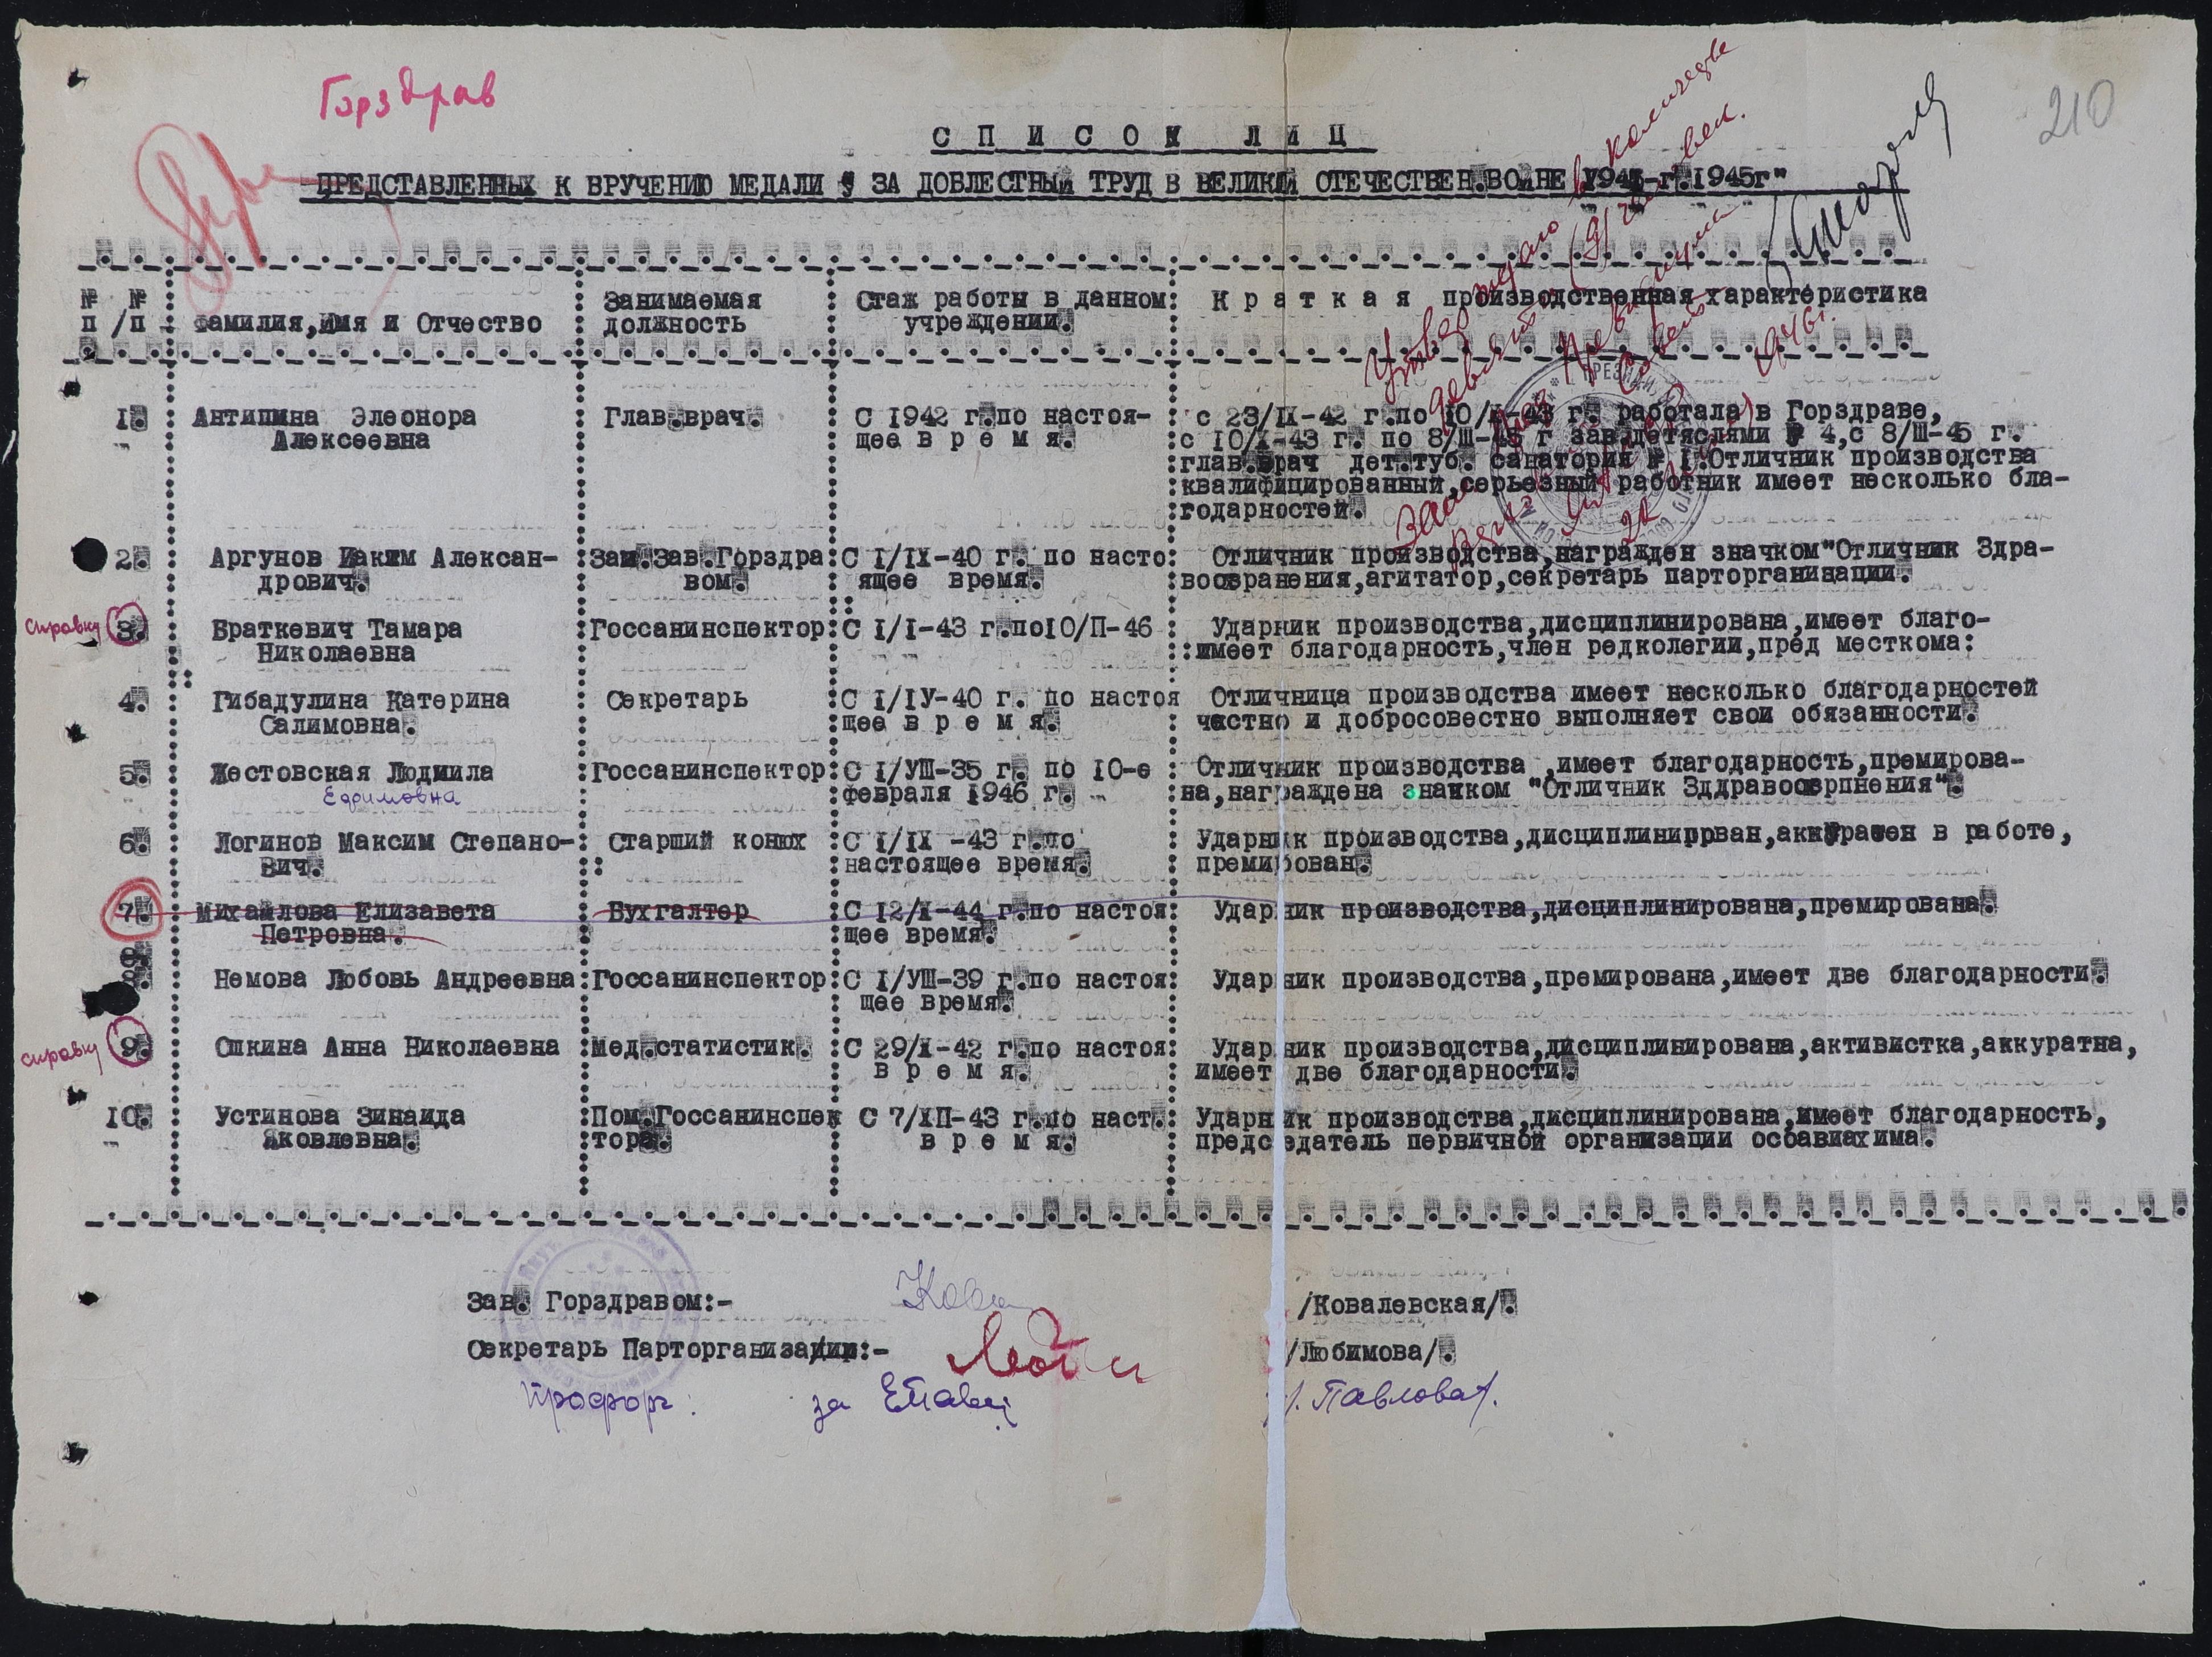 Горздрав
210
СПИСОК ЛИЦ
ПРЕДСТАВЛЕННЫХ К ВРУЧЕНИЮ МЕДАЛИ " ЗА ДОБЛЕСТНЫЙ ТРУД В ВЕЛИКОЙ ОТЕЧЕСТВЕН.ВОЙНЕ 1941-г.1945г"
Утверждаю в количестве
девяти (9) человек.
№ №
п /п
Фамилия,Имя и Отчество
Занимаемая
должность
Стаж работы в данном
учреждении.
Краткая производственная характеристика
1946г.
1.
Антипина Элеонора
Алексеевна
Глав.врач.
С 1942 г.по настоя-
щее время.
с 23/II-42 г.по 10/I-43 г. работала в Горздраве,
с 10/I-43 г. по 8/Ш-45 г зав.детяслями № 4,с 8/Ш-45 г.
глав.врач дет.туб. санатория № I.Отличник производства
квалифицированный,серьезный работник имеет несколько бла-
годарностей.
2.
Аргунов Иаким Алексан-
дрович.
Зам.Зав.Горздра
вом.
С I/IX-40 г. по насто
ящее время.
Отличник производства,награжден значком"Отличник Здра-
воозранения,агитатор,секретарь парторганизации.
справку
3.
Браткевич Тамара
Николаевна
Госсанинспектор
С I/I-43 г.по10/П-46
Ударник производства,дисциплинирована,имеет благо-
имеет благодарность,член редколегии,пред месткома:
4.
Гибадулина Катерина
Салимовна.
Секретарь
С I/IУ-40 г. по настоя
щее время.
Отличница производства имеет несколько благодарностей
честно и добросовестно выполняет свои обязанности.
5.
Жестовская Людмила
Ефимовна
Госсанинспектор
С I/УШ-35 г. по 10-е
февраля 1946 г.
Отличник производства ,имеет благодарность,премирова-
на,награждена значком "Отличник Зддравоохрпнения".
6.
Логинов Максим Степано-
Вич.
Старший конюх
С I/IX -43 г.по
настоящее время.
Ударник производства,дисциплинирован,аккуратен в работе,
премирован.
7.
Михайлова Елизавета
Петровна.
Бухгалтер
С 12/X-44 г.по настоя
щее время.
Ударник производства,дисциплинирована,премирована.
8.
Немова Любовь Андреевна
Госсанинспектор
С I/УШ-39 г.по настоя
щее время.
Ударник производства,премирована,имеет две благодарности.
справку
9.
Ошкина Анна Николаевна
Мед.статистик.
С 29/X-42 г.по настоя
время.
Ударник производства,дисциплинирована,активистка,аккуратна,
имеет две благодарности.
10.
Устинова Зинаида
Яковлевна.
Пом.Госсанинспек
тора.
С 7/IП-43 г.по наст.
время.
Ударник производства,дисциплинирована,имеет благодарность,
председатель первичной организации осоавиахима.
Зав. Горздравом:-
/Ковалевская/.
Секретарь Парторганизации:-
/Любимова/.
Профорг: за
/. Павлова/.